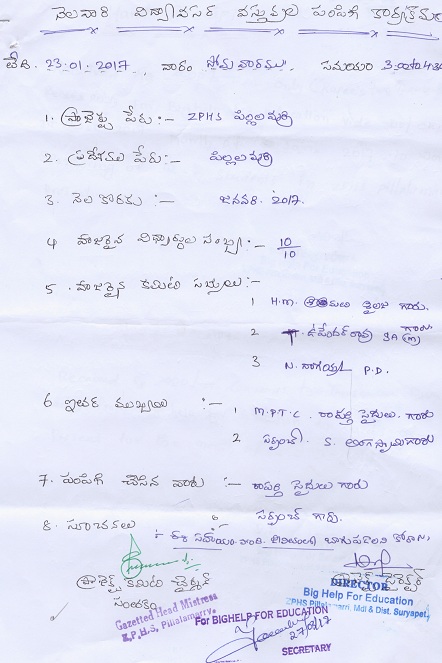 నెలవారి విద్యావసర వస్తువుల పంపిణి కార్యక్రమం
తేది. 23.01.2017, వారం సోమవారము సమయం
1. ప్రాజెక్టు పేరు:- ZPHS పిల్లలమర్రి
2. ప్రదేశము పేరు:- పిల్లలమర్రి
3. నెల కొరకు :- జనవరి. 2017.
4 హాజరైన విద్యార్థుల సంఖ్య :- 10/10
5. హాజరైన కమిటి సభ్యులు :-
1 H.M. శైలజ గారు.
2 T. ఉపేందర్ రావు SA (M) గారు
3 N. నాగయ్య P.D.
6 ఇతర ముఖ్యులు :- 1 M.P.T.C. రాపర్తి సైదులు. గారు
2 సర్పంచ్. S. గారు
7. పంపిణి చేసిన వారు :- రాపర్తి సైదులు గారు
సర్పంచ్ గారు.
8. సూచనలు :- ఈ సహాయం
ప్రాజెక్ట్ కమిటి చైర్మన్ ప్రాజెక్ట్ డైరెక్టర్
సంతకం
Gazetted Head Mistress
Z.P.H.S, Pillalamarry.
DIRECTOR
Big Help For Education
ZPHS Pillalamarri, Mdl & Dist. Suryapet.
For BIGHELP FOR EDUCATION
27/01/17
SECRETARY